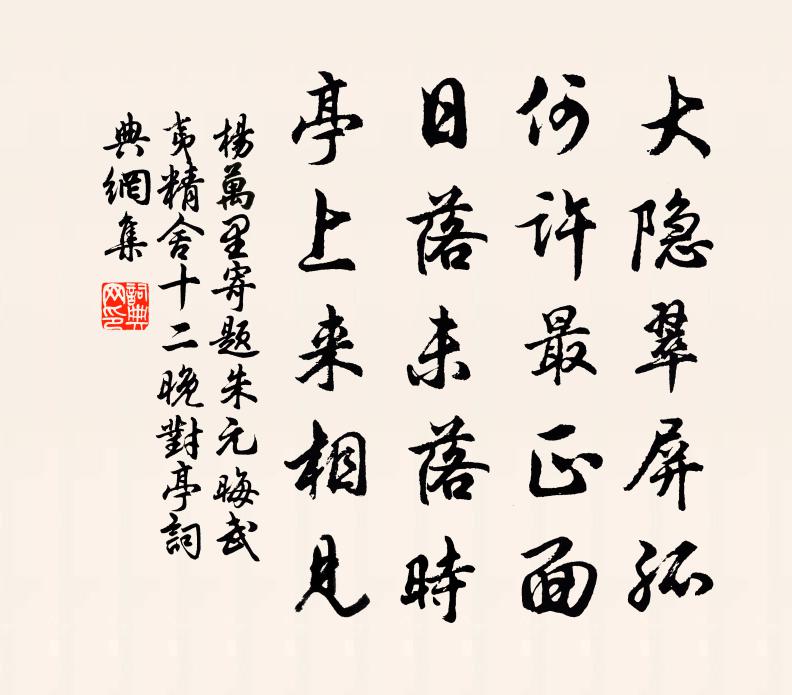 大隐翠屏孤
何许最正面
日落未落時
亭上来相見
楊萬里寄題朱元晦武
夷精舍十二晚對亭詞
典網集
詞典
网印